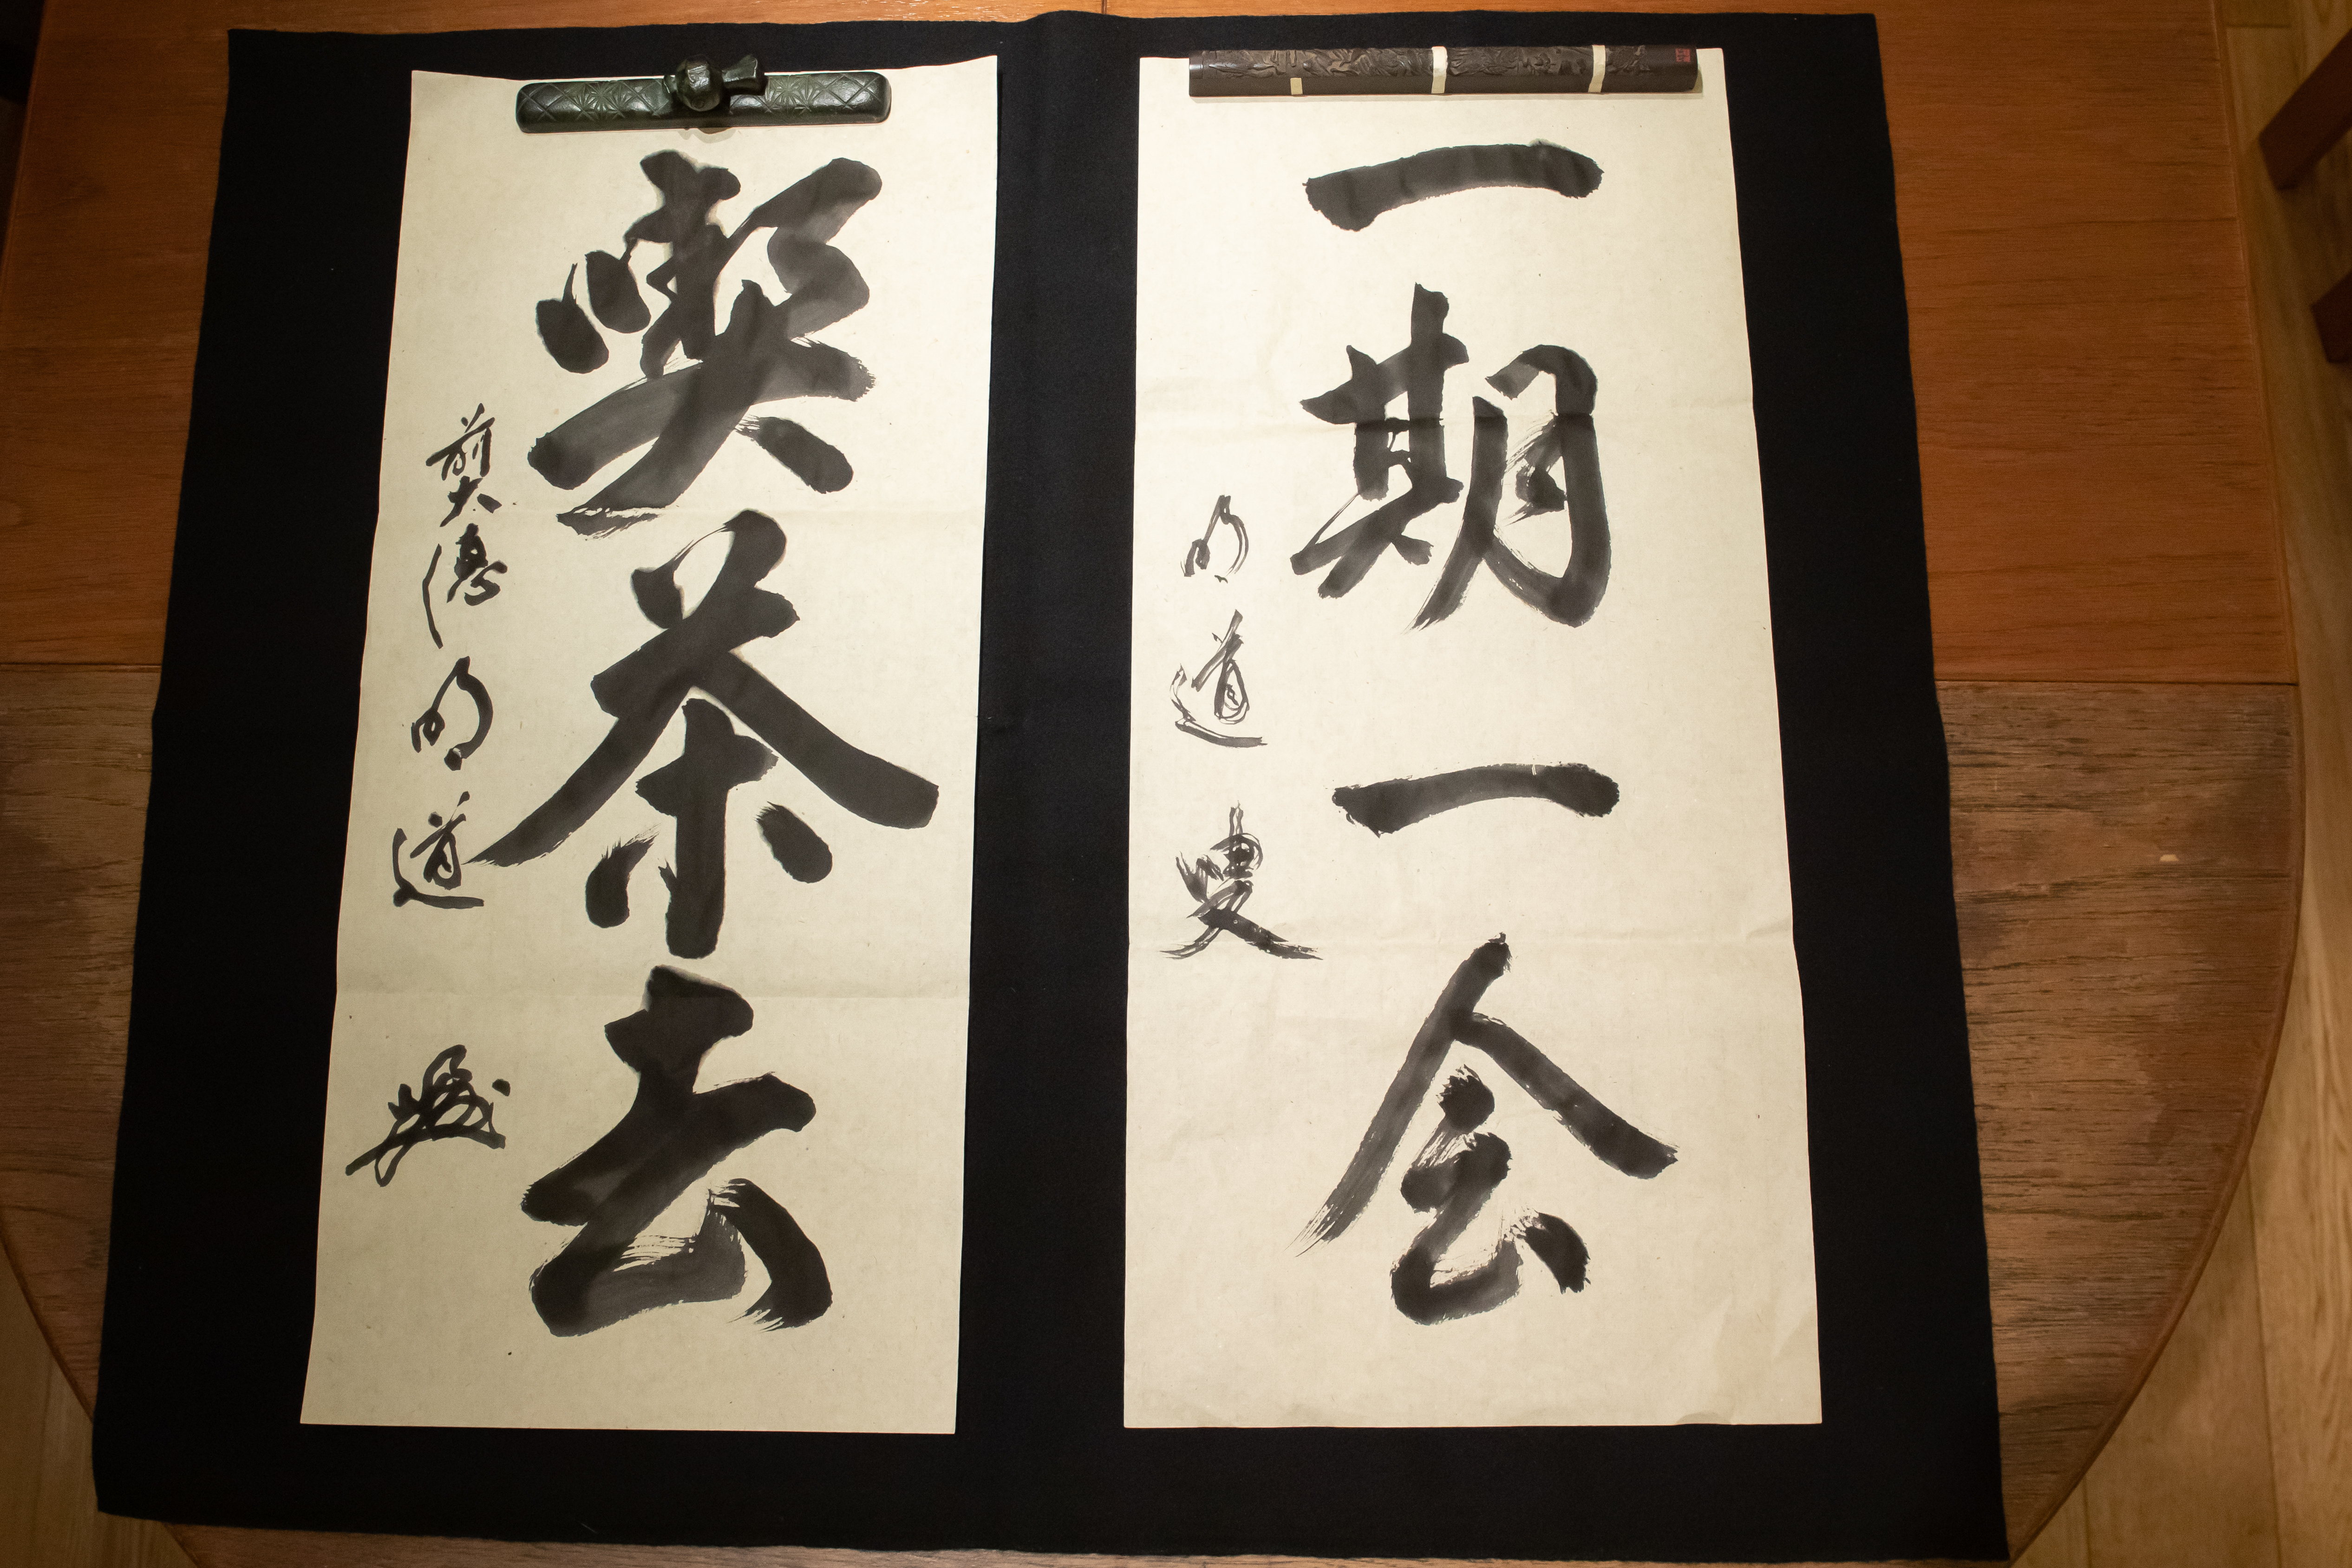 一期一会
明道叟
喫茶去
前大徳明道